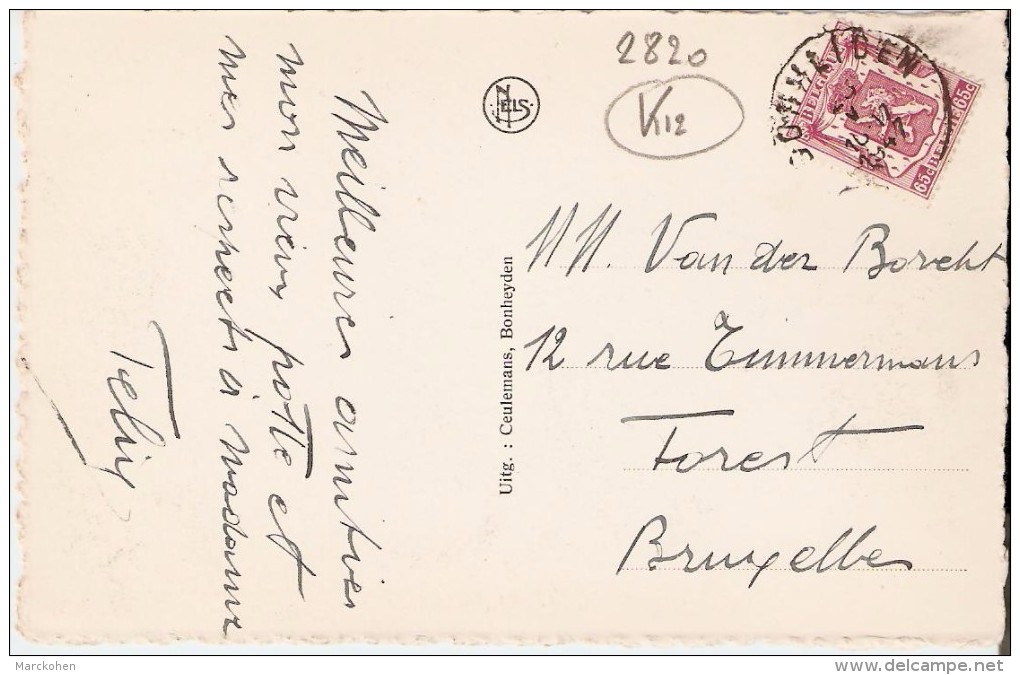 Meilleures amitiés
mon vieux potte et
mes respects à Madame
Felix
2820
K12
NELS
Uitg. : Ceulemans, Bonheyden
BELGIQUE
65c
65c BELGIE
MM. Van der Borcht
12 rue Timmermans
Forest
Bruxelles
Marckohen
www.delcampe.net